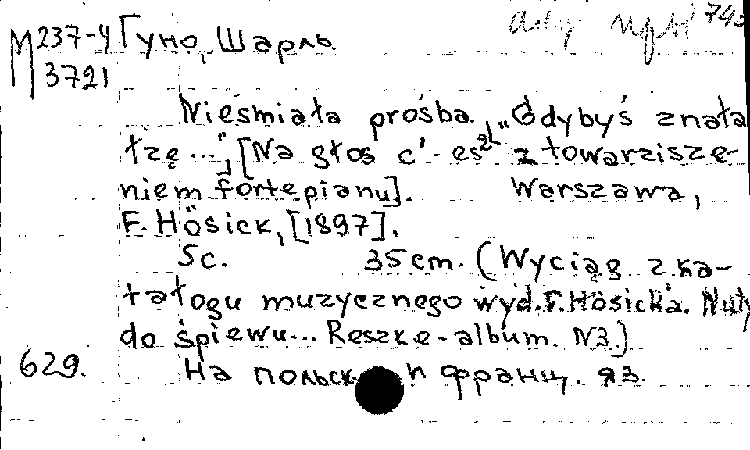 М 237-4 Гуно, Шарль
3721
Nieśmiała prośba „Gdybyś znała
łzę...", [Na głos c'-es² z towarzisze-
niem fortepianu]. Warszawa,
F. Hösick, [1897].
5c. 35cm. (Wyciąg z ka-
tałogu muzycznego wyd. F. Hösicka. Nuty
do śpiewu... Reszke-album. N3.)
629. На польск и франц. яз.